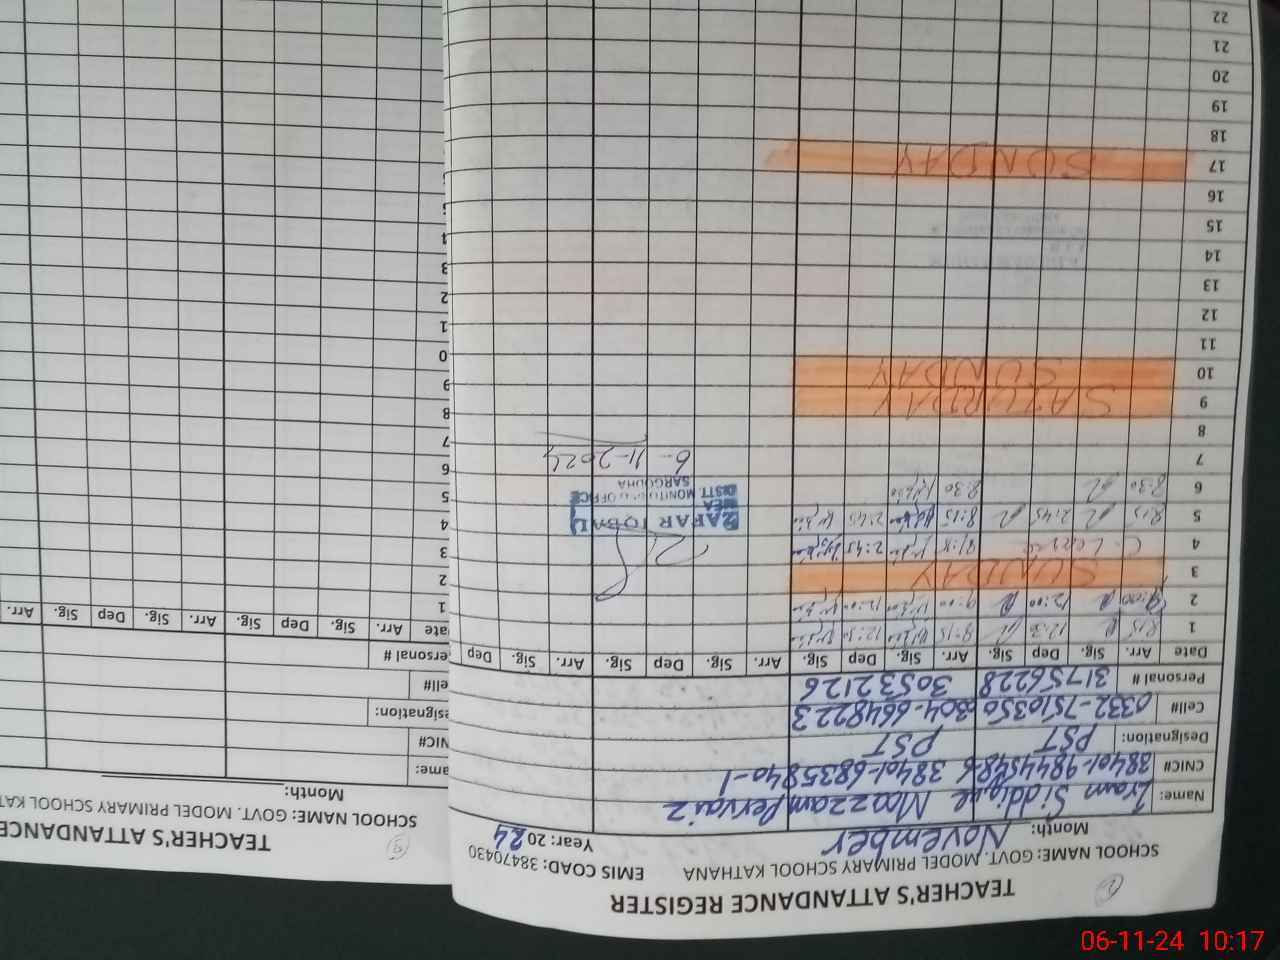 TEACHER'S ATTANDANCE REGISTER
SCHOOL NAME: GOVT. MODEL PRIMARY SCHOOL KATHANA EMIS COAD: 38470430
Month: November Year: 2024
Name: Iram Siddique Moazzam Pervaiz
CNIC# 38401-6835840-1
Designation: PST PST
Cell# 0332-7510350 0304-6648223
Personal # 31756228 30532126
Date Arr. Sig. Dep Sig. Arr. Sig. Dep Sig. Arr. Sig. Dep Sig. Arr. Sig. Dep
1 8:15 12:30 8:15 12:30
2 9:00 12:00 9:00 12:00
3 SUNDAY
4 C. Leave 2:45
5 8:15 2:45 8:15 2:45
6 8:30 8:30
7
8
9 SATURDAY
10 SUNDAY
11
12
13
14
15
16
17 SUNDAY
18
19
20
21
22
ZAFAR IQBAL
MEA
DISTT. MONITORING OFFICE
SARGODHA
6-11-2024
TEACHER'S ATTANDANCE
SCHOOL NAME: GOVT. MODEL PRIMARY SCHOOL KAT
Month:
ame:
NIC#
esignation:
ell#
ersonal #
ate Arr. Sig. Dep Sig. Arr. Sig. Dep Sig. Arr.
1
2
3
4
5
6
7
8
9
0
1
1
2
3
4
06-11-24 10:17